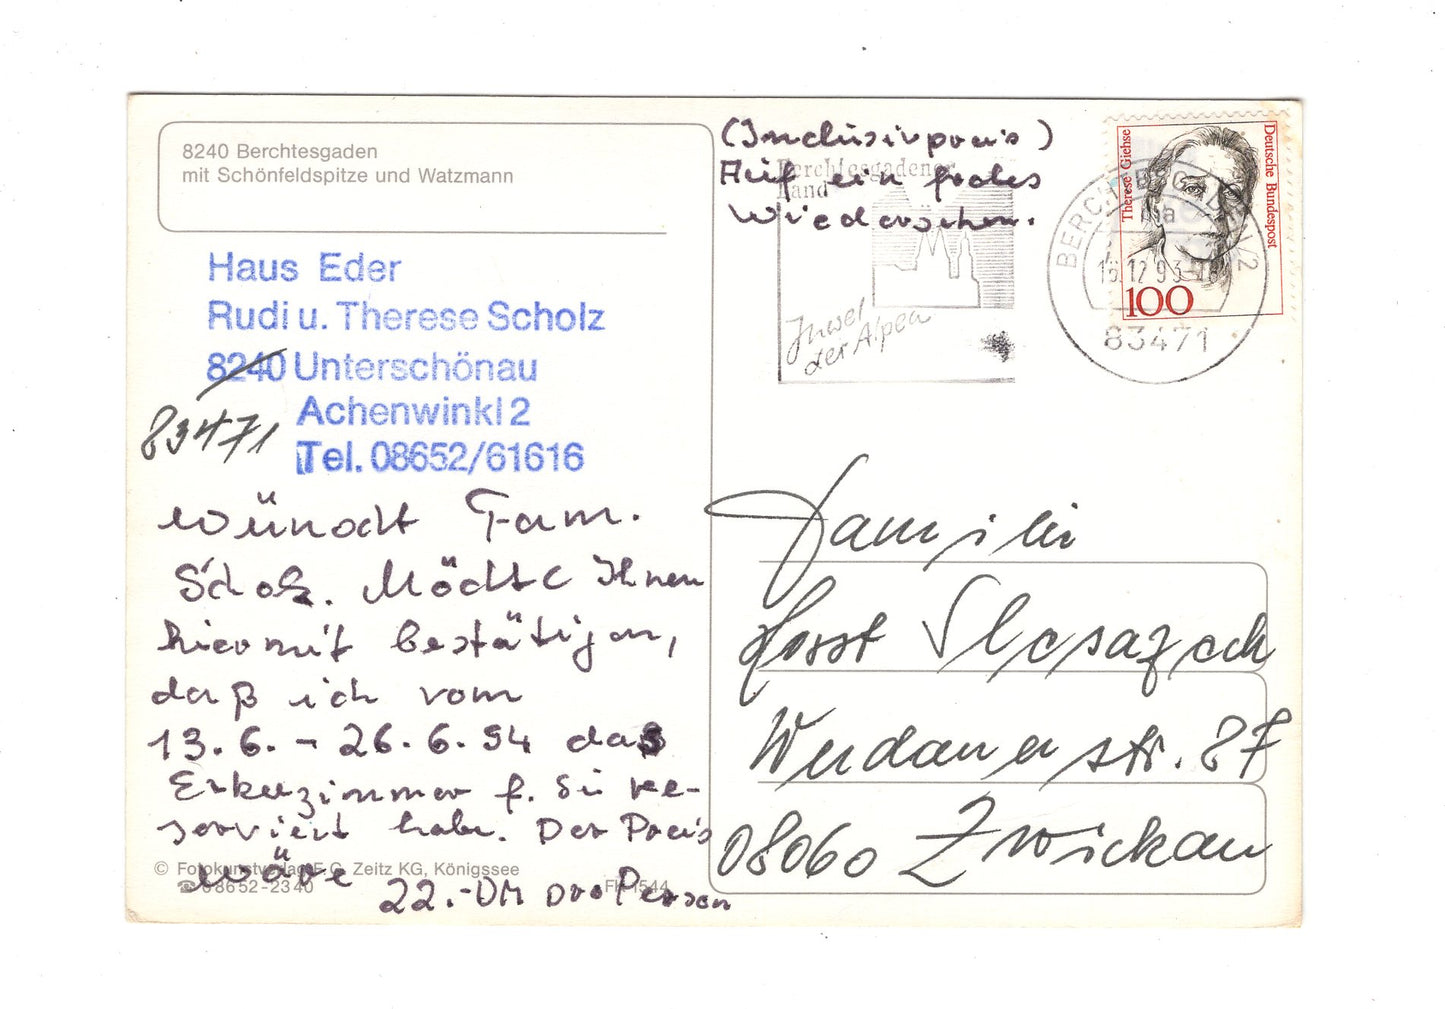 8240 Berchtesgaden
mit Schönfeldspitze und Watzmann
Haus Eder
Rudi u. Therese Scholz
8240 Unterschönau
83471
Achenwinkl 2
Tel. 08652/61616
wünscht Fam.
Scholz. Möchte Ihnen
hiermit bestätigen,
daß ich vom
13.6. - 26.6.94 das
Erkerzimmer f. Sie re-
serviert habe. Der Preis
wäre 22.-DM pro Person
(Inclusivpreis)
Auf ein frohes
Wiedersehen.
© Fotokunstverlag F. G. Zeitz KG, Königssee
☎ 08652-2340
FK 1544
Berchtesgadener
Land
Juwel
der Alpen
BERCHTESGADEN 1
83471
Therese Giehse
Deutsche Bundespost
100
Familie
Horst
Werdauerstr. 87
08060 Zwickau